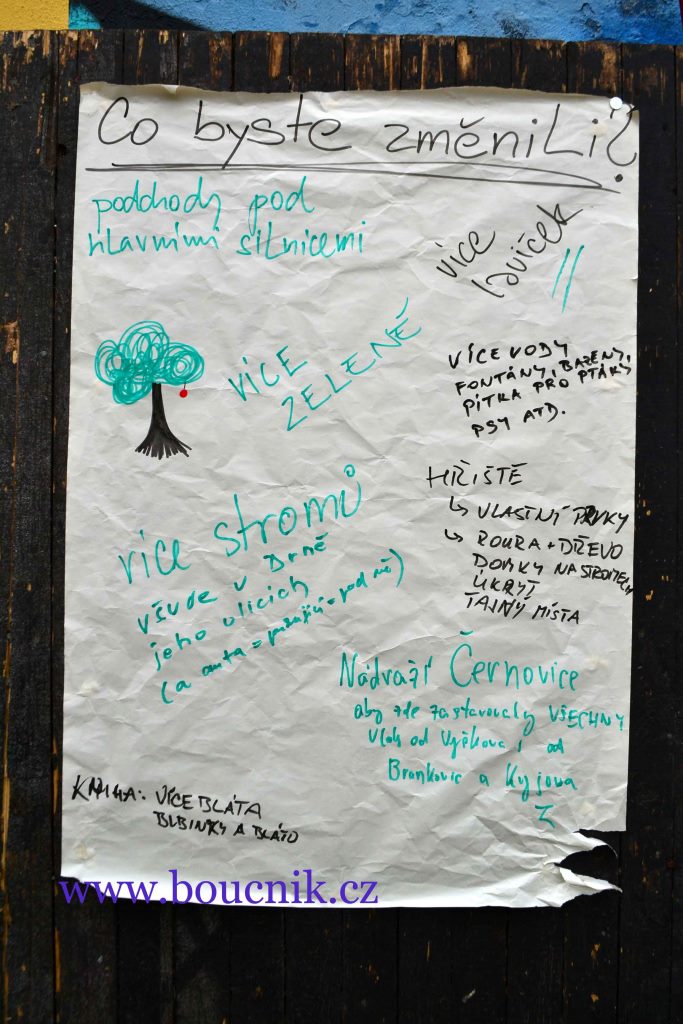 Co byste změnili?
podchody pod
hlavními silnicemi
více
laviček
VÍCE
ZELENĚ
VÍCE VODY
FONTÁNY, BAZÉNY,
PÍTKA PRO PTÁKY
PSY ATD.
HŘIŠTĚ
↳ VLASTNÍ PRVKY
↳ ROURA + DŘEVO
DOMKY NA STROMECH
ÚKRYT
TAJNÝ MÍSTA
více stromů
všude v Brně
jeho ulicích
(a auta =
Nádraží Černovice
aby zde zastavovaly VŠECHNY
vlaky od Vyškova i od
a Kyjova
KNIHA: VÍCE BLÁTA
BLBINKY A BLÁTO
www.boucnik.cz